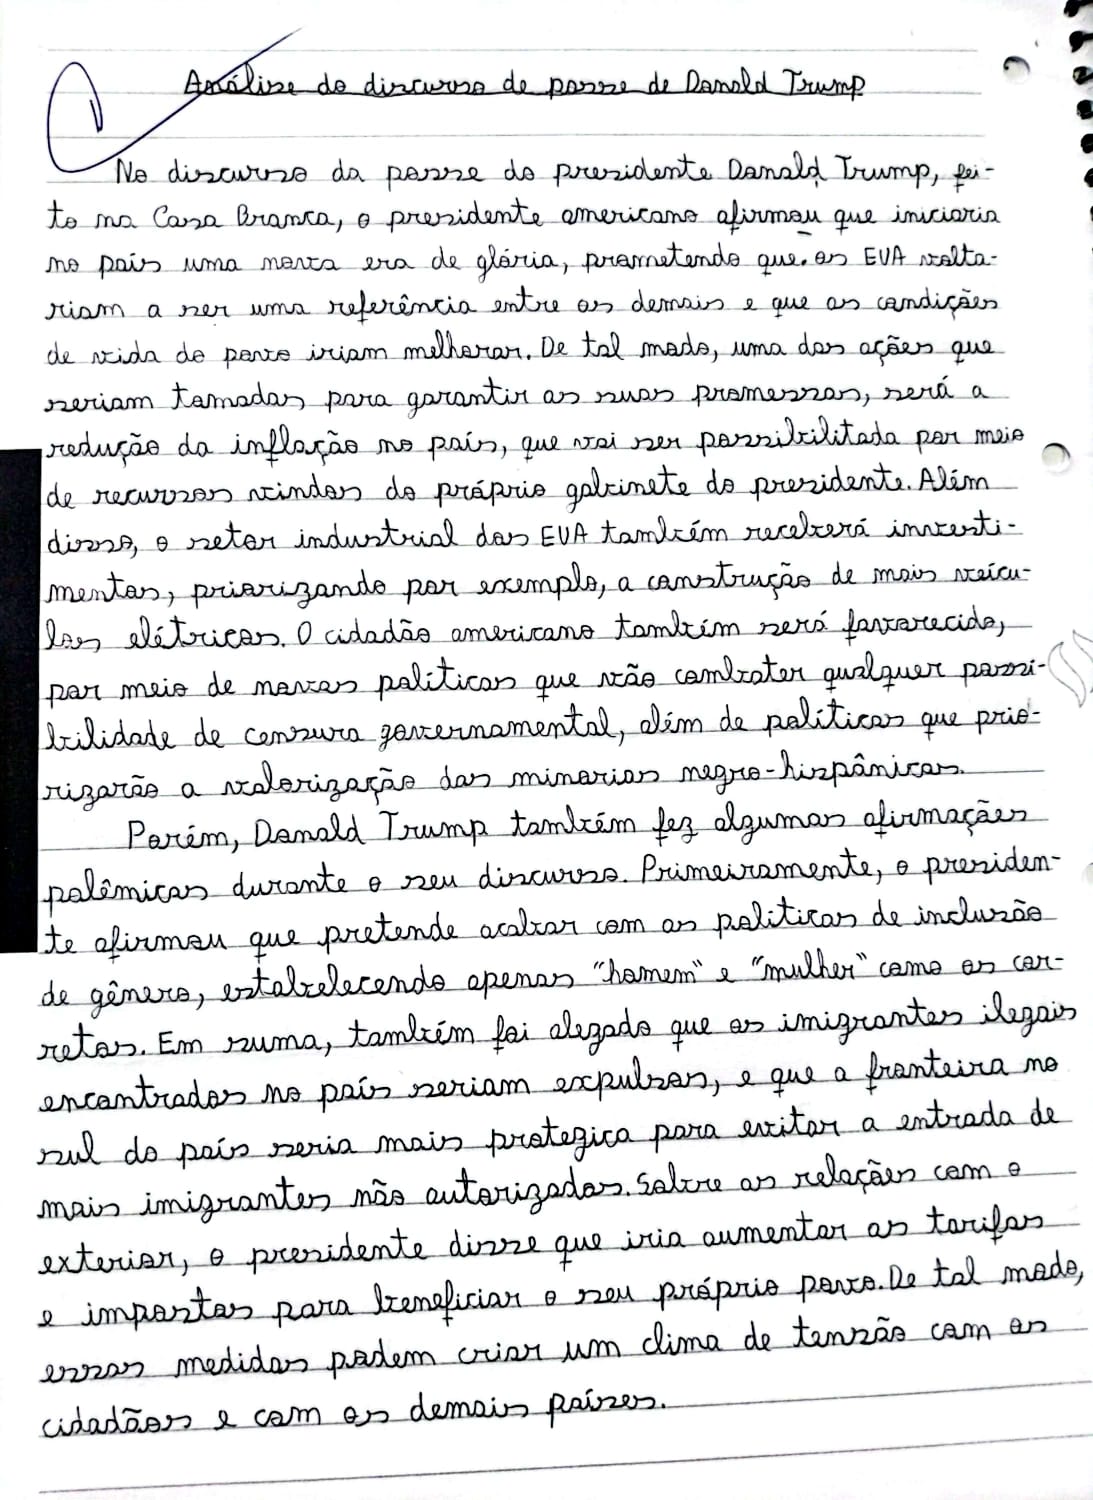 Análise do discurso de posse de Donald Trump
No discurso da posse do presidente Donald Trump, fei-
to na Casa Branca, o presidente americano afirmou que iniciaria
no país uma nova era de glória, prometendo que os EUA volta-
riam a ser uma referência entre os demais e que as condições
de vida do povo iriam melhorar. De tal modo, uma das ações que
seriam tomadas para garantir as suas promessas, será a
redução da inflação no país, que vai ser possibilitada por meio
de recursos vindos do próprio gabinete do presidente. Além
disso, o setor industrial dos EUA também receberá investi-
mentos, priorizando por exemplo, a construção de mais veícu-
los elétricos. O cidadão americano também será favorecido,
por meio de novas políticas que vão combater qualquer possi-
bilidade de censura governamental, além de políticas que prio-
rizarão a valorização das minorias negro-hispânicas.
Porém, Donald Trump também fez algumas afirmações
polêmicas durante o seu discurso. Primeiramente, o presiden-
te afirmou que pretende acabar com as políticas de inclusão
de gênero, estabelecendo apenas "homem" e "mulher" como os cor-
retos. Em suma, também foi alegado que os imigrantes ilegais
encontrados no país seriam expulsos, e que a fronteira no
sul do país seria mais protegiça para evitar a entrada de
mais imigrantes não autorizados. Sobre as relações com o
exterior, o presidente disse que iria aumentar as tarifas
e impostos para beneficiar o seu próprio povo. De tal modo,
essas medidas podem criar um clima de tensão com os
cidadãos e com os demais países.